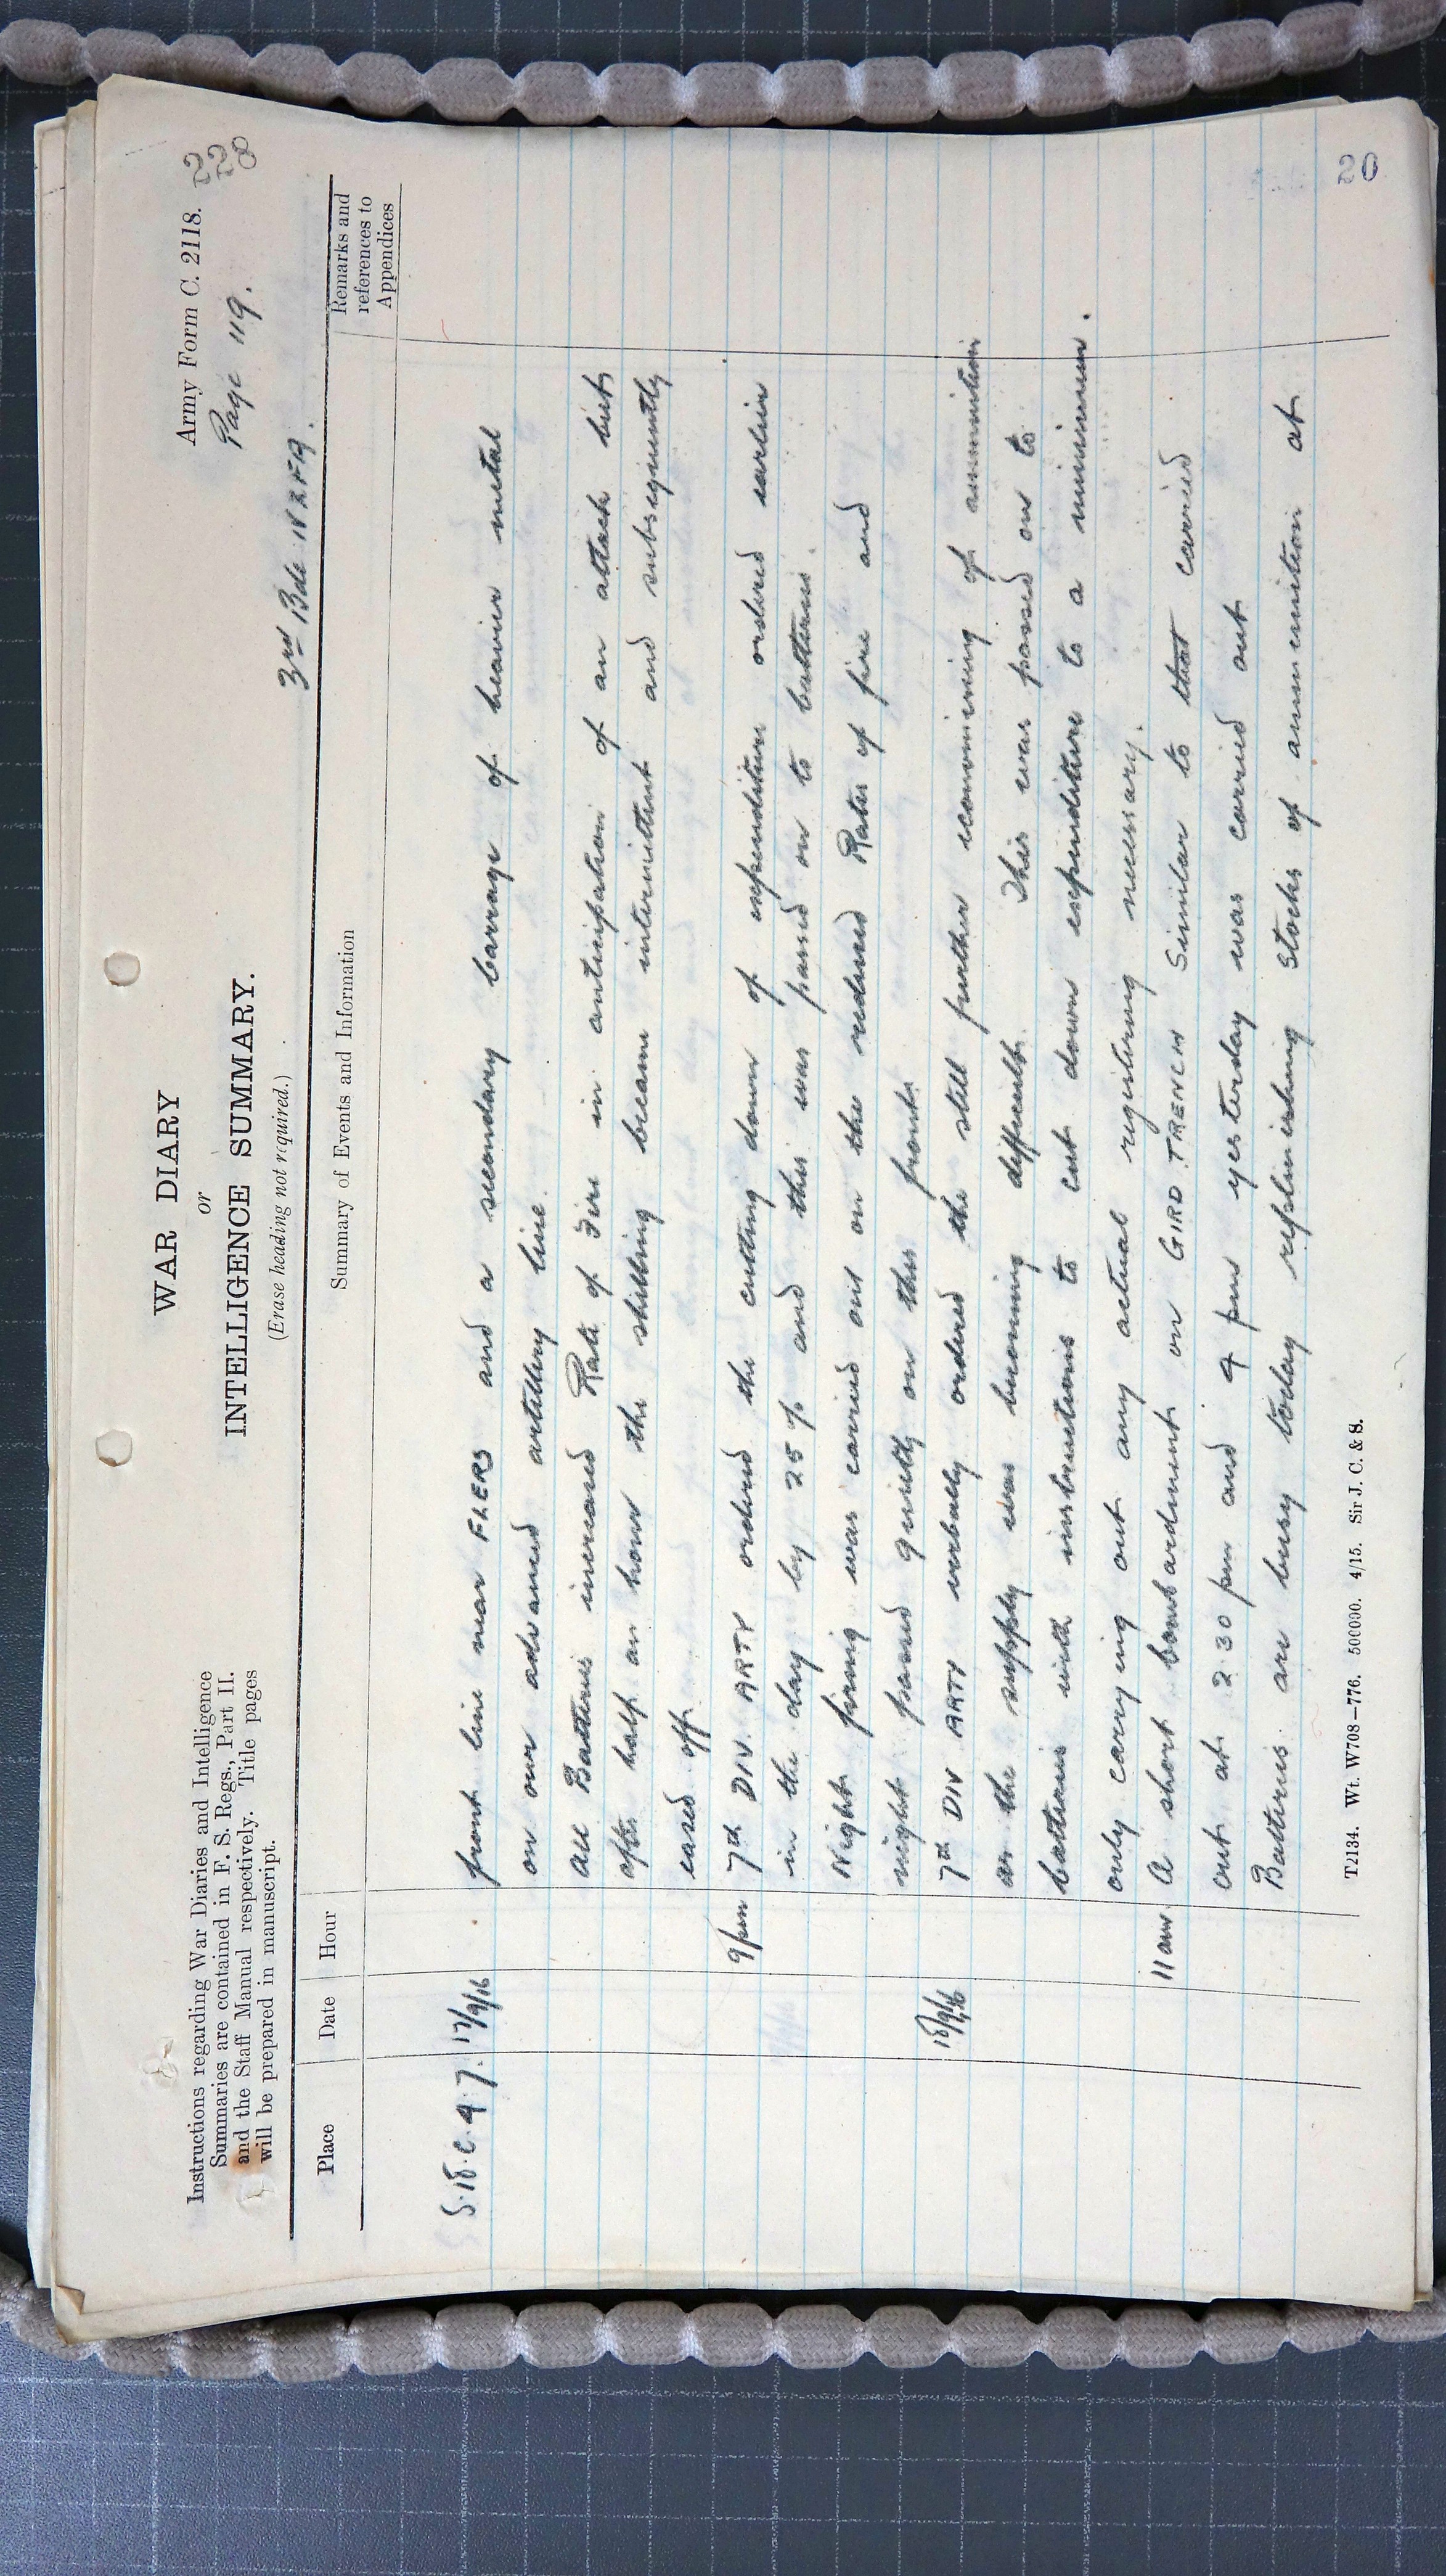 WAR DIARY
or
INTELLIGENCE SUMMARY.
(Erase heading not required.)
Instructions regarding War Diaries and Intelligence
Summaries are contained in F. S. Regs., Part II.
and the Staff Manual respectively. Title pages
will be prepared in manuscript.
Army Form C. 2118.
228
Page 119.
3rd Bde NZFA.
Place Date Hour Summary of Events and Information Remarks and references to Appendices
S.18.c.4.7. 17/9/16 front line near FLERS and a secondary barrage of heavier metal
on our advanced artillery line.
All Batteries increased Rate of Fire in anticipation of an attack but
after half an hour the shelling became intermittent and subsequently
eased off
9pm 7th DIV. ARTY ordered the cutting down of expenditure ordered earlier
in the day by 25% and this was passed on to batteries.
Night firing was carried out on the reduced Rates of fire and
night passed quietly on this front.
18/9/16 7th DIV ARTY verbally ordered the still further economising of ammunition
as the supply was becoming difficult. This was passed on to
batteries with instructions to cut down expenditure to a minimum.
only carrying out any actual registering necessary.
11 am. A short bombardment on GIRD TRENCH similar to that carried
out at 2.30 pm and 4 pm yesterday was carried out
Batteries are busy today replenishing stocks of ammunition at
T2134. Wt. W708—776. 500000. 4/15. Sir J. C. & S.
20